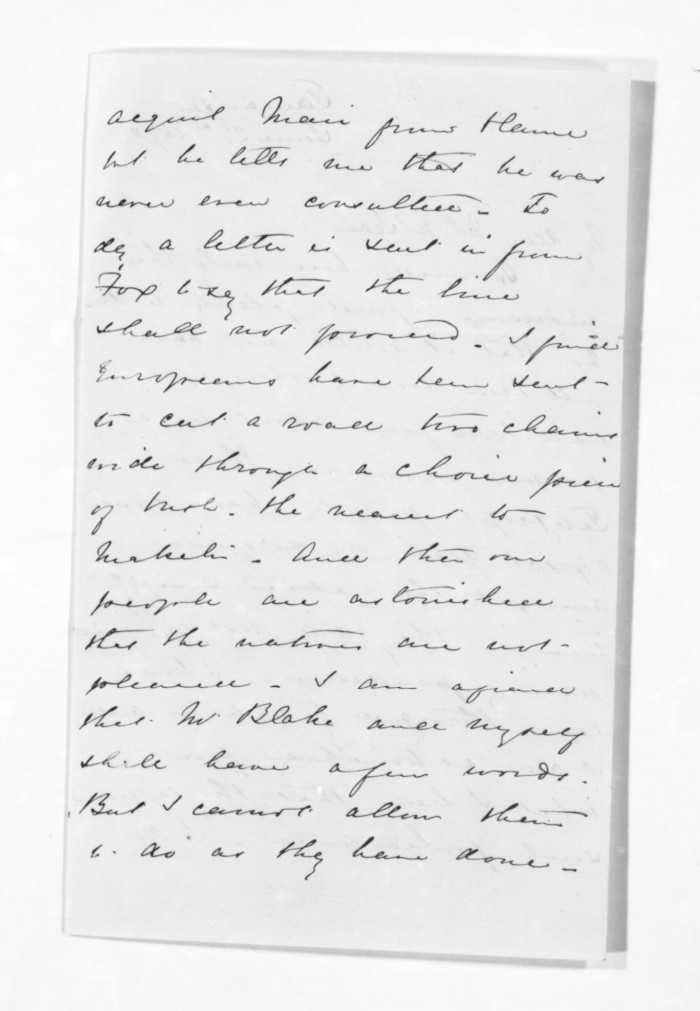 acquit Mair from blame
but he tells me that he was
never even consulted. To
day a letter is sent in from
Fox to say that the line
shall not proceed. I find
Europeans have been sent
to cut a road two chains
wide through a choice piece
of bush. the nearest to
Maketu. And then our
people are astonished
that the natives are not
pleased. I am afraid
that Mr Blake and myself
shall have a few words.
But I cannot allow them
to do as they have done.